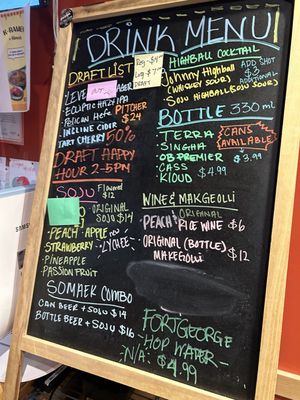 DRINK MENU
DRAFT LIST
Reg - $4
Lrg - $7
DRAFT
ECLIPTIC HAZE IPA
PELICAN HEFE
INCLINE CIDER
TART CHERRY
PITCHER
$24
50%
DRAFT HAPPY
HOUR 2-5PM
SOJU
Flavored
$12
ORIGINAL
SOJU $14
PEACH · APPLE
STRAWBERRY · LYCHEE
PINEAPPLE
PASSION FRUIT
SOMAEK COMBO
CAN BEER + SOJU $14
BOTTLE BEER + SOJU $16
HIGHBALL COCKTAIL
Johnny Highball
(WHISKEY SOUR)
SOJU HIGHBALL (SOJU SOUR)
ADD SHOT
$3
ADDITIONAL
BOTTLE 330 ml
TERRA
SINGHA
OB PREMIER
CASS
KLOUD
$4.99
CANS
AVAILABLE
$3.99
WINE & MAKGEOLLI
ORIGINAL
PEACH RICE WINE $6
ORIGINAL (BOTTLE)
MAKEGOLLI
$12
FORT GEORGE
HOP WATER
N/A: $4.99